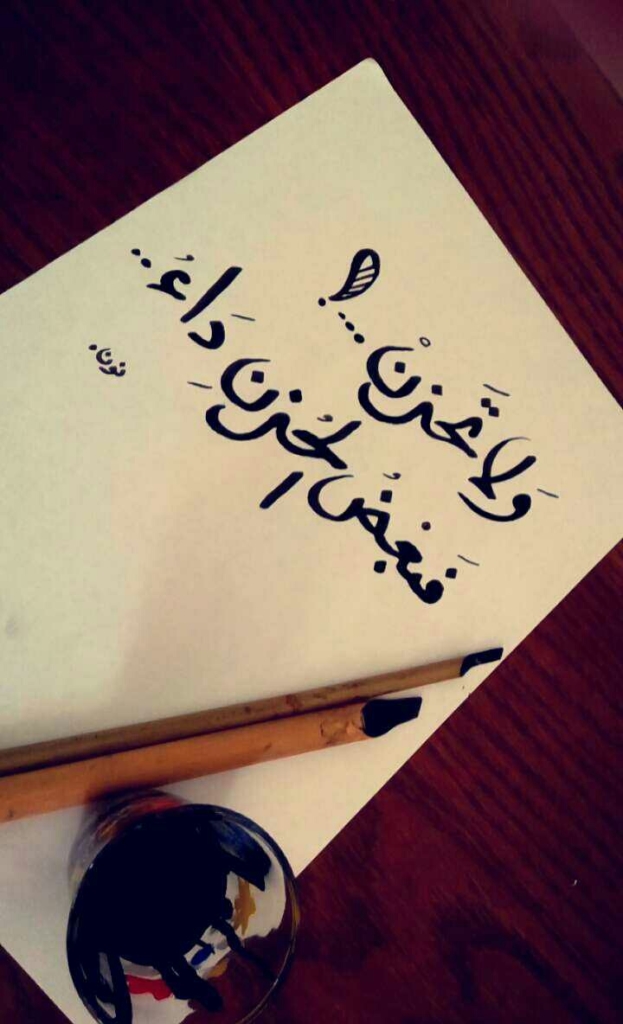 وَلا تَحزنْ...!
فبَعضُ الحُزنِ دَاءُ..
نون.